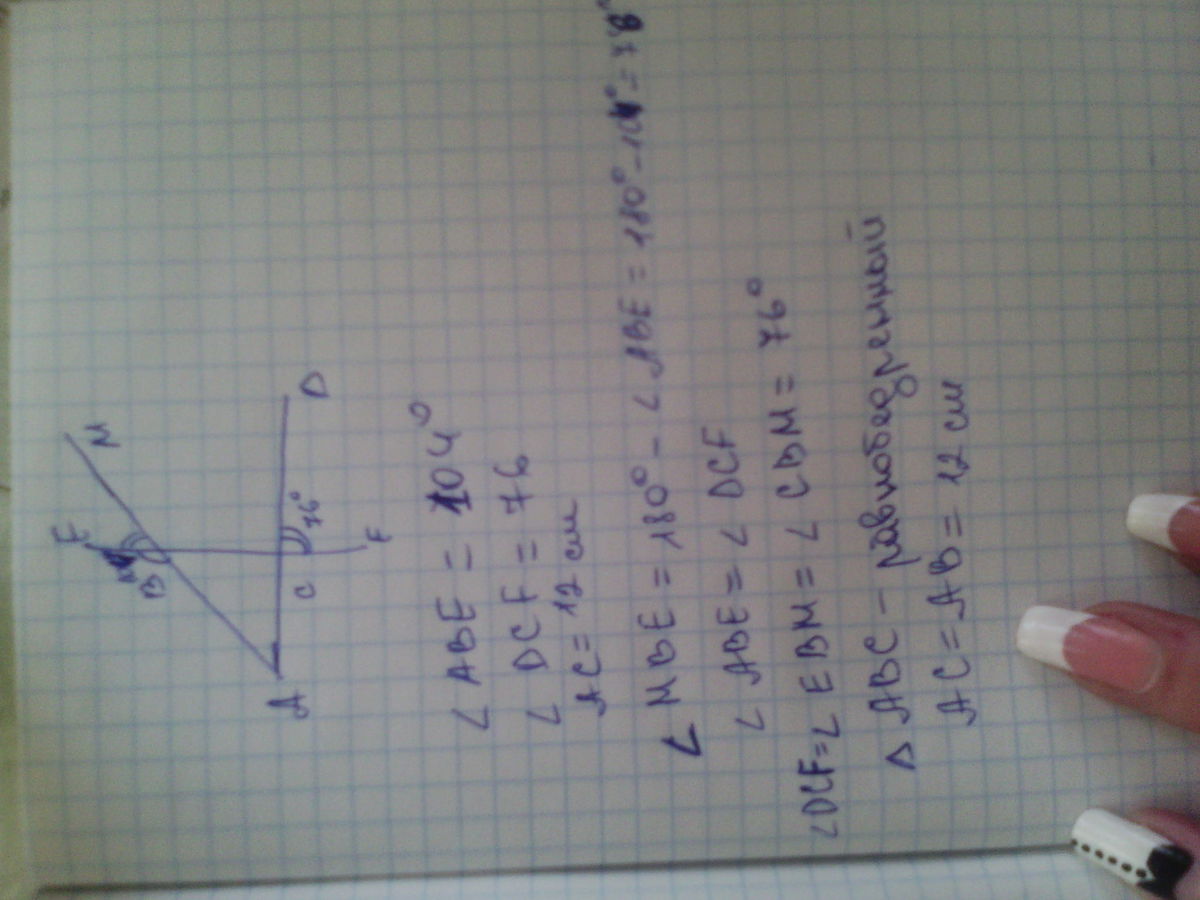 E
M
B
A
C
76°
D
F
∠ ABE = 104°
∠ DCF = 76
AC = 12 см
∠ MBE = 180° - ∠ ABE = 180° - 104° = 78°
∠ ABE = ∠ DCF
∠DCF = ∠ EBM = ∠ CBM = 76°
Δ ABC - равнобедренный
AC = AB = 12 см